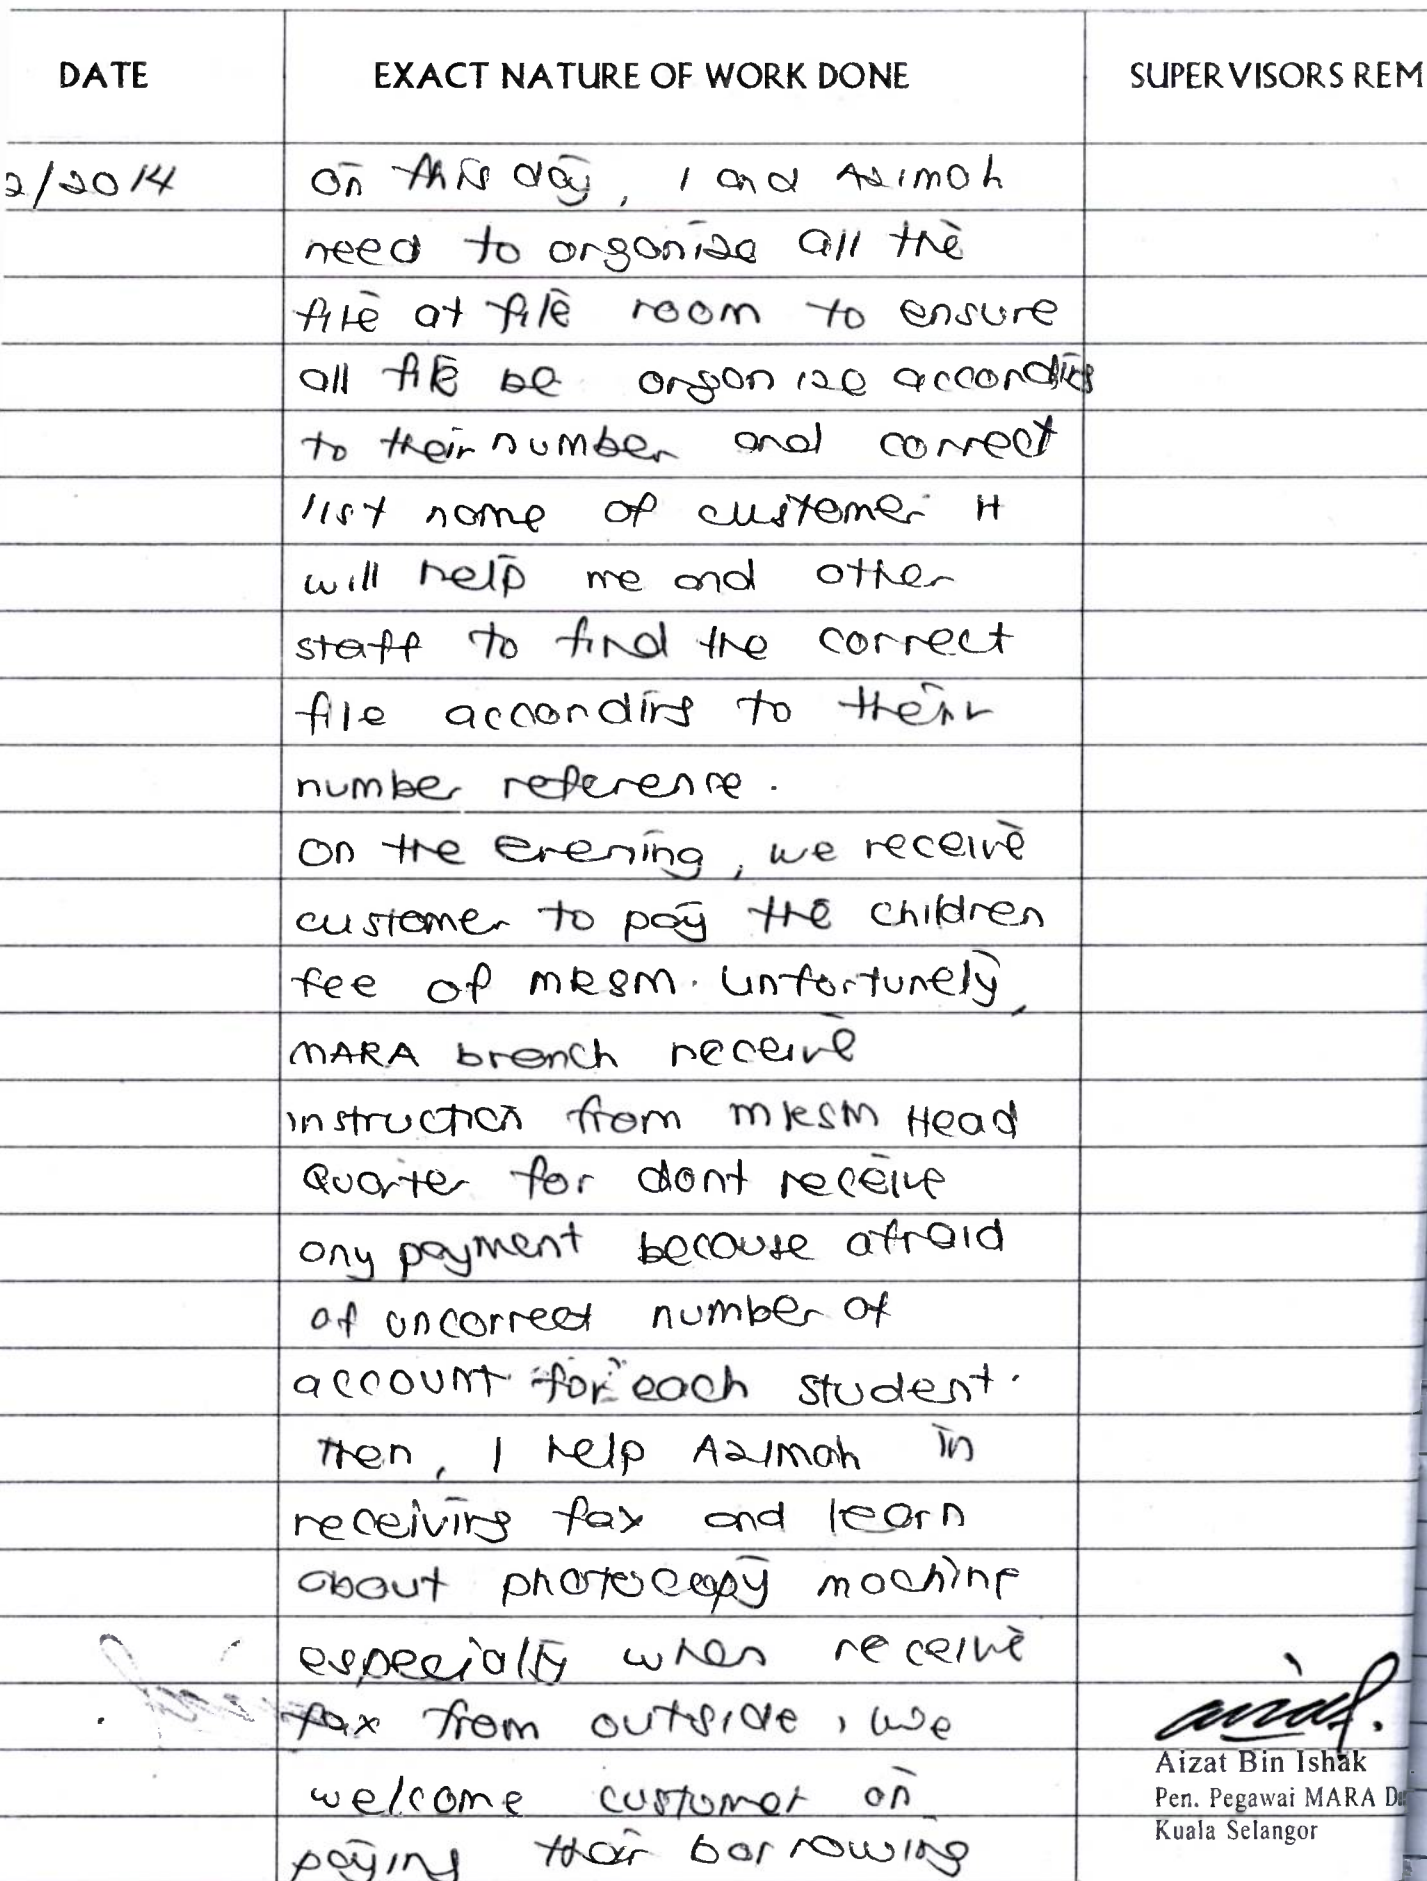 DATE EXACT NATURE OF WORK DONE SUPERVISORS REM
2/2014 On this day, I and Azimah
need to organize all the
file at file room to ensure
all file be organize according
to their number and correct
list name of customer. It
will help me and other
staff to find the correct
file according to their
number reference.
On the evening, we receive
customer to pay the children
fee of MRSM. Unfortunely,
MARA branch receive
instruction from MRSM Head
Quarter for dont receive
any payment because afraid
of uncorrect number of
account for each student.
Then, I help Azimah in
receiving fax and learn
about photocopy machine
especially when receive
fax from outside, we
welcome customer on
paying their borrowing
Aizat Bin Ishak
Pen. Pegawai MARA
Kuala Selangor